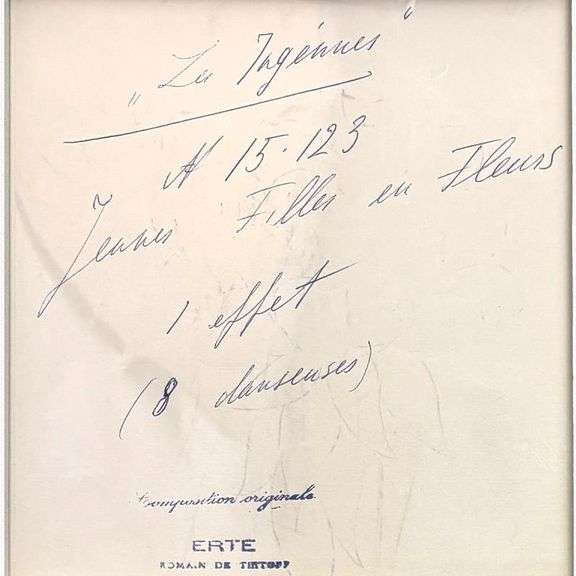 „Les Ingénues"
N 15.123
Jeunes Filles en Fleurs
1 effet
(8 danseuses)
Composition originale
ERTE
ROMAIN DE TIRTOFF